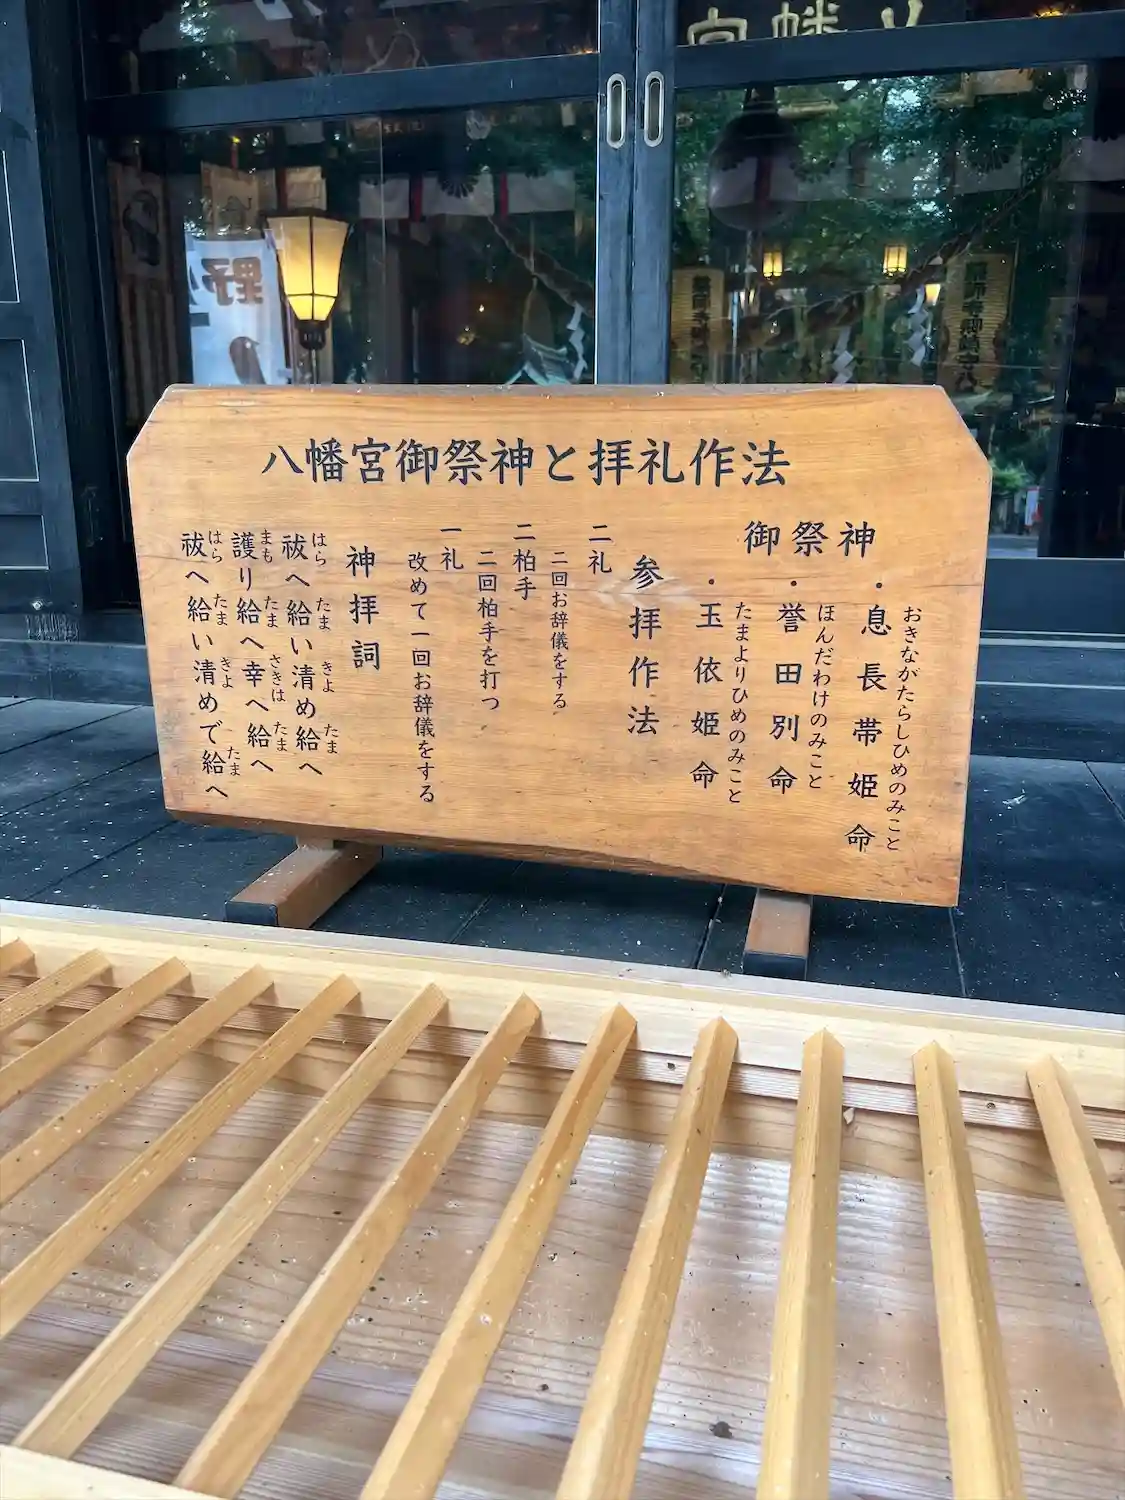 八幡宮御祭神と拝礼作法
御祭神
・息長帯姫命
おきながたらしひめのみこと
・誉田別命
ほんだわけのみこと
・玉依姫命
たまよりひめのみこと
参拝作法
二礼
二回お辞儀をする
二柏手
二回柏手を打つ
一礼
改めて一回お辞儀をする
神拝詞
祓へ給い清め給へ
はら たま きよ たま
護り給へ幸へ給へ
まも たま さきは たま
祓へ給い清めで給へ
はら たま きよ たま
野
幡宮